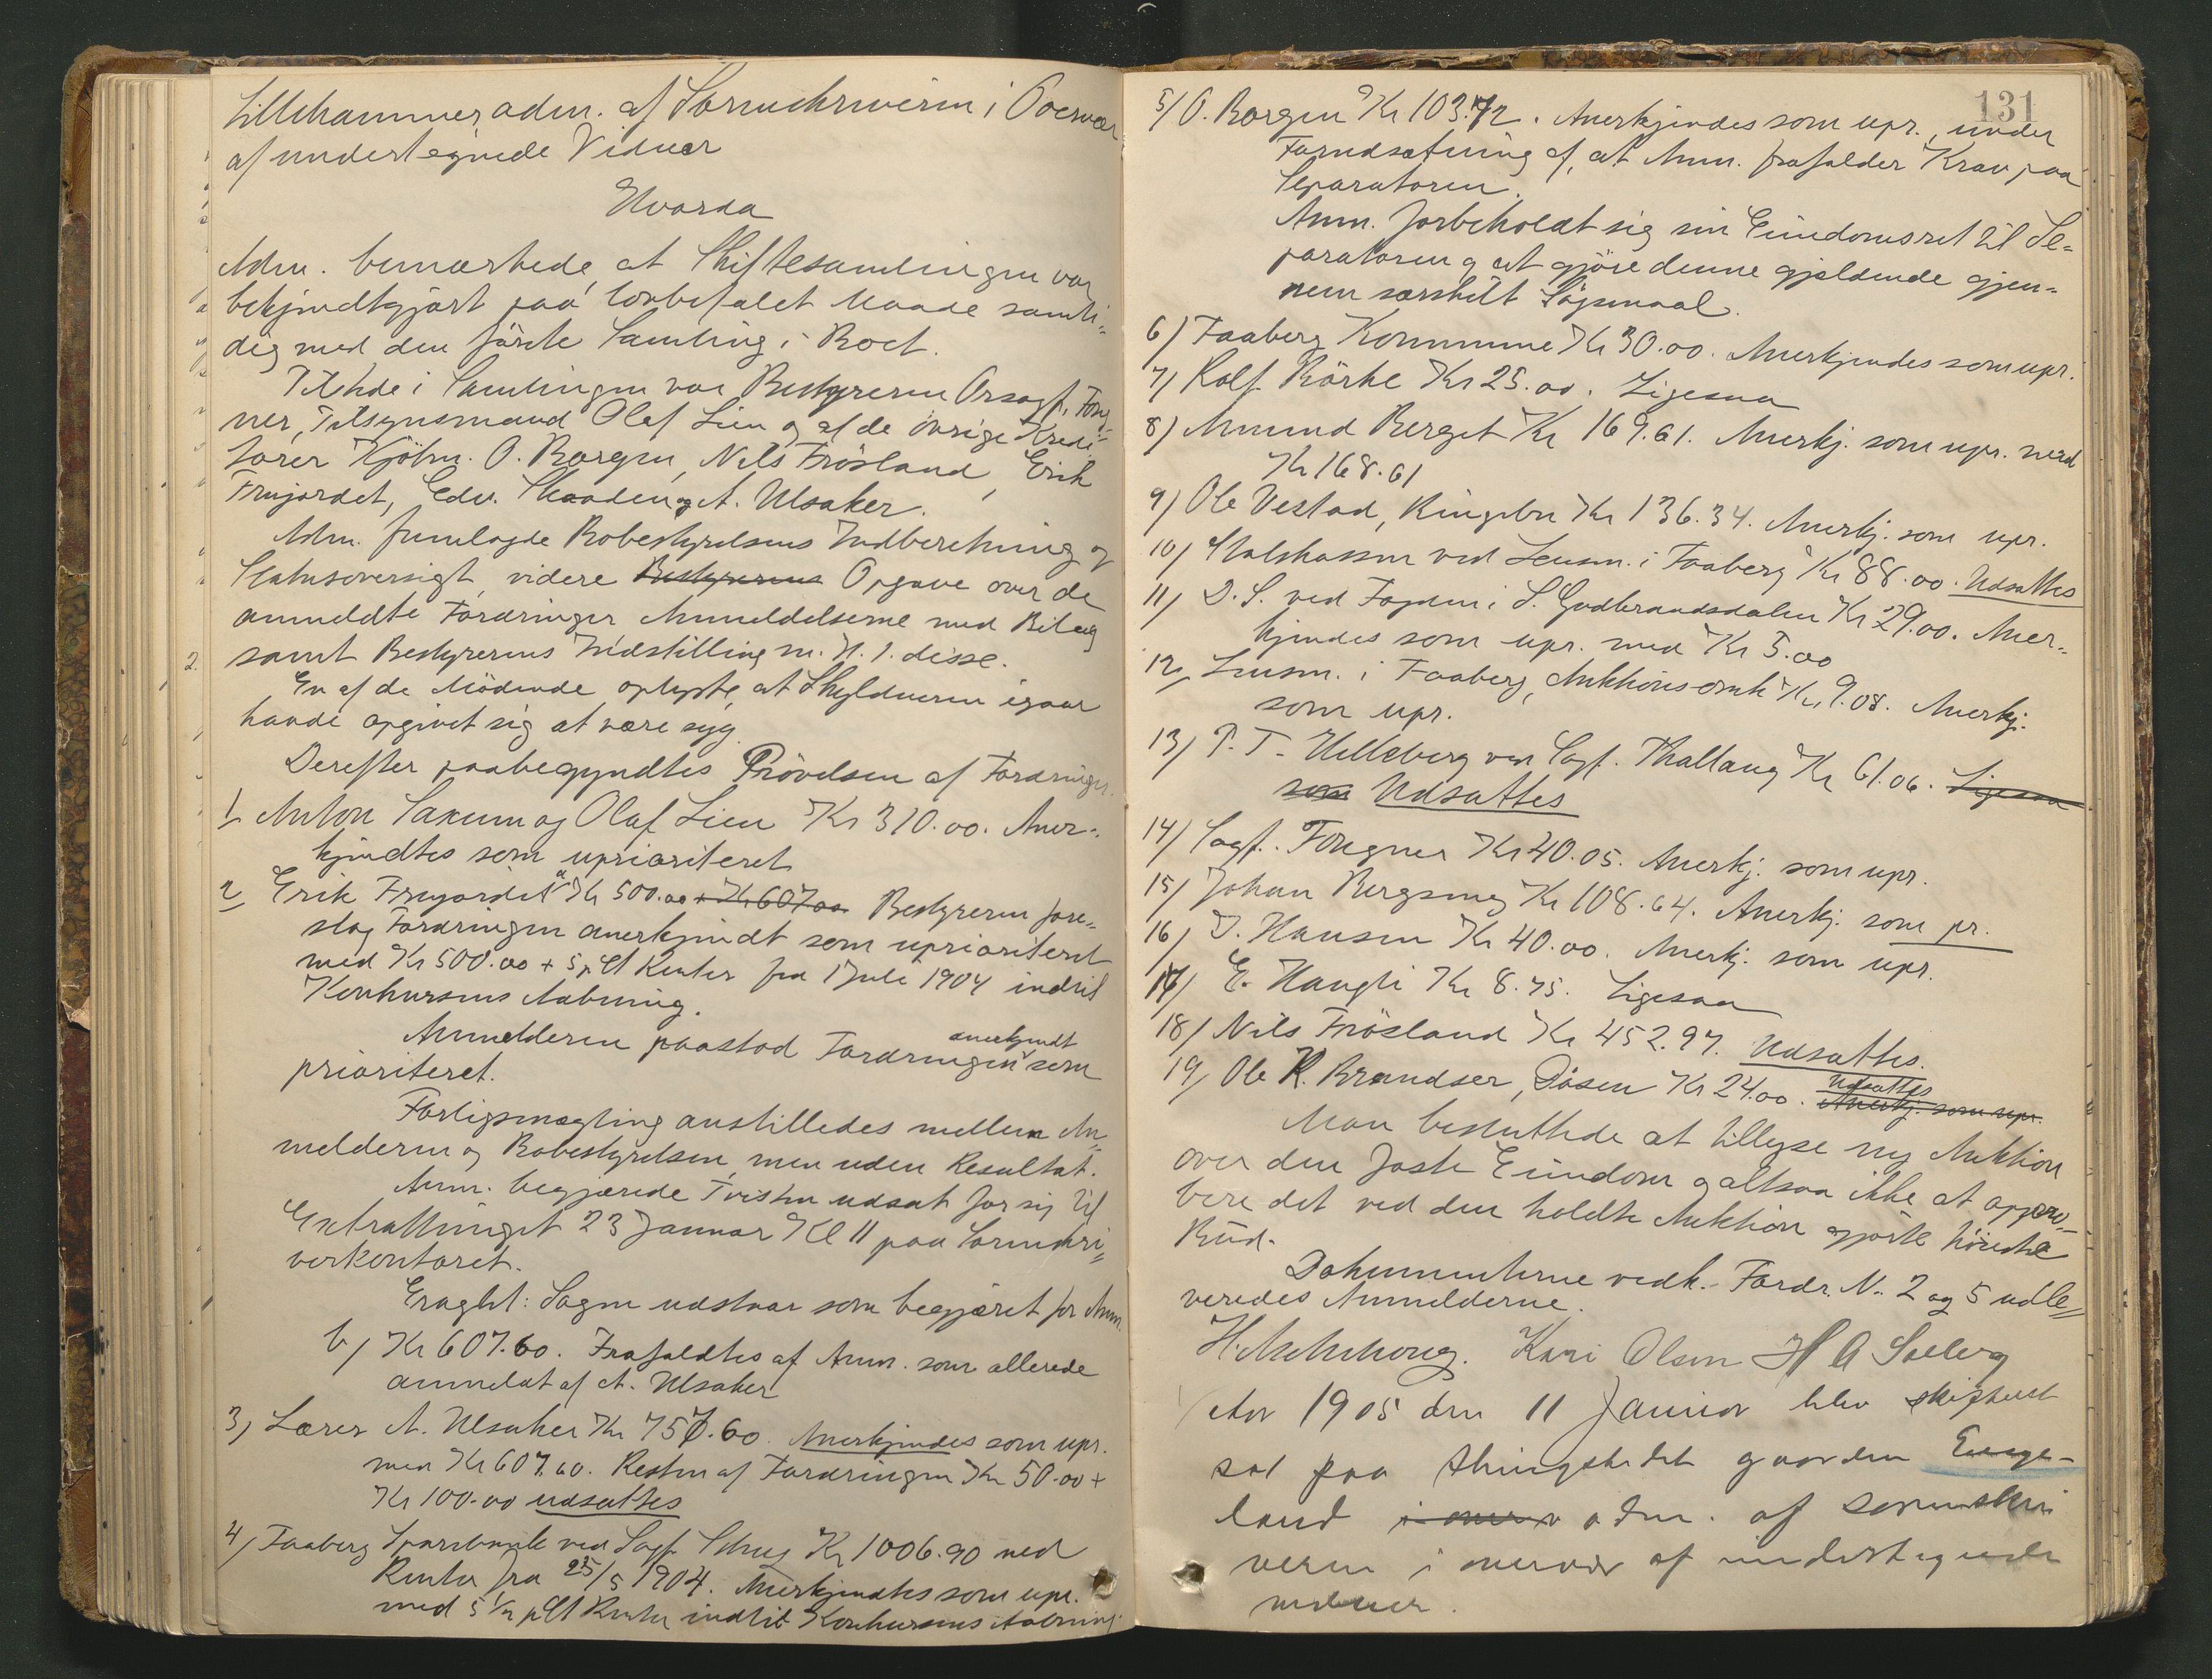 Lillehammer adm. af Sorenskriveren i Overvær
af undertegnede Vidner
Hvorda
Adm. bemærkede, at Skiftesamlingen var
bekjendtgjort paa lovbefalet Maade samti-
dig med den første Samling i Boet.
Tilstede i Samlingen var Bestyreren Orsagf. Fou-
ner, Tilsynsmand Olaf Lien og af de øvrige Kredi-
torer Kjøbm. O. Borgen, Nils Frøsland, Erik
Frujordet, Edv. Skaaden og A. Ulsaker.
Adm. fremlagde Bobestyrelsens Indberetning og
Statusoversigt, videre Bestyrerens Opgave over de
anmeldte Fordringer Anmeldelserne med Bilag
samt Bestyrerens Indstilling m. H. t. disse.
En af de Mødende oplyste, at Skyldneren igaar
havde opgivet sig at være syg.
Derefter paabegyndtes Prøvelsen af Fordringer.
1 Anton Saxum og Olaf Lien Kr 310.00. Aner-
kjendtes som uprioriteret
2 Erik Frujordet a Kr 500.00 + Kr 607.00 Bestyreren fore-
slog Fordringen anerkjendt som uprioriteret
med Kr 500.00 + 5 p Ct Renter fra 1 Juli 1904 indtil
Konkursens Aabning.
Anmelderen paastod Fordringen anerkjendt som
prioriteret.
Forligsmægling anstilledes mellem An-
melderen og Bobestyrelsen, men uden Resultat.
Anm. begjærede Tvisten udsat for sig til
Extrathinget 23 Januar Kl 11 paa Sorenskri-
verkontoret.
Eragtet: Sagen udstaar som begjæret for Anm.
b) Kr 607.60. Frafaldtes af Anm. som allerede
anmeldt af A. Ulsaker
3) Lærer A. Ulsaker Kr 757.60. Anerkjendes som upr.
med Kr 607.60. Resten af Fordringen Kr 50.00 +
Kr 100.00 udsattes
4) Faaberg Sparebank ved Sagf. Schug Kr 1006.90 med
Renter fra 25/5 1904. Anerkjendtes som upr.
med 5 1/2 p Ct Renter indtil Konkursens Aabning
131
5) O. Borgen Kr 103.72. Anerkjendes som upr., under
Forudsætning af, at Anm. frafalder Krav paa
Separatoren.
Anm. forbeholdt sig sin Eiendomsret til Se-
paratoren og at gjøre denne gjældende gjen-
nem særskilt Søgsmaal.
6) Faaberg Kommune Kr 30.00. Anerkjendes som upr.
7) Rolf Rörke Kr 25.00. Ligesaa
8) Amund Berget Kr 169.61. Anerkj. som upr. med
Kr 168.61
9) Ole Vestad, Ringebu Kr 136.34. Anerkj. som upr.
10) Statskassen ved Lensm. i Faaberg Kr 88.00. Udsattes
11) D. S. ved Fogden i S. Gudbrandsdalen Kr 29.00. Aner-
kjendes som upr. med Kr 5.00
12) Lensm. i Faaberg, Auktionsomk. Kr 9.08. Anerkj.
som upr.
13) P. T. Hilleberg ved Sagf. Thallaug Kr 61.06. Ligesaa
som Udsattes
14) Sagf. Fougner Kr 40.05. Anerkj. som upr.
15) Johan Bergseng Kr 108.64. Anerkj. som pr.
16) J. Hansen Kr 40.00. Anerkj. som upr.
17) E. Haugli Kr 8.75. Ligesaa
18) Nils Frøsland Kr 452.97. Udsattes.
19) Ole K. Brandser, Døsen Kr 24.00. Udsattes Anerkj. som upr.
Man besluttede at tillyse ny Auktion
over den faste Eiendom og altsaa ikke at appro-
bere det ved den holdte Auktion gjorte høieste
Bud.
Dokumenterne vedk. Fordr. N. 2 og 5 udle-
veredes Anmelderne.
Kari Olsen H A Solberg
Aar 1905 den 11 Januar blev skifteret
sat paa thingstedet gaarden Enge-
land i over adm. af sorenskri
veren i overvær af undertegnede
vidner.